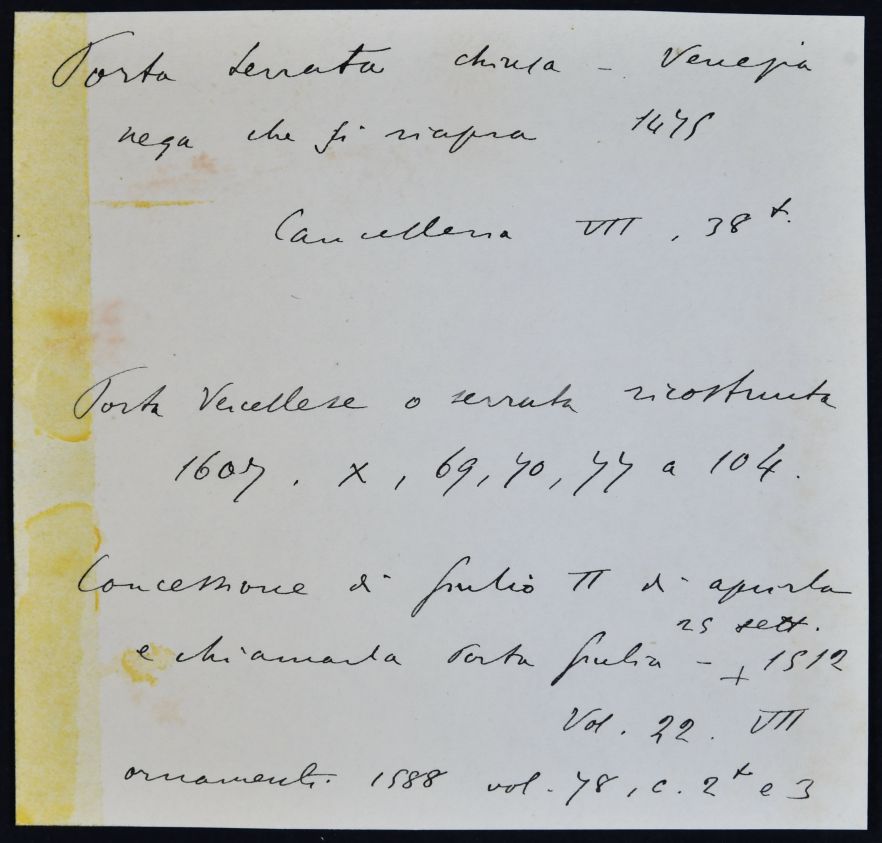 Porta Serrata chiusa – Venezia
nega che si riapra 1475
Cancelleria VII, 38 t.
Porta Vercellese o serrata ricostruita
1607, X, 69, 70, 77 a 104.
Concessione di Giulio II di aprirla
25 sett.
e chiamarla Porta Giulia – + 1512
Vol. 22. VII
ornamenti. 1588 vol. 78, c. 2 t e 3